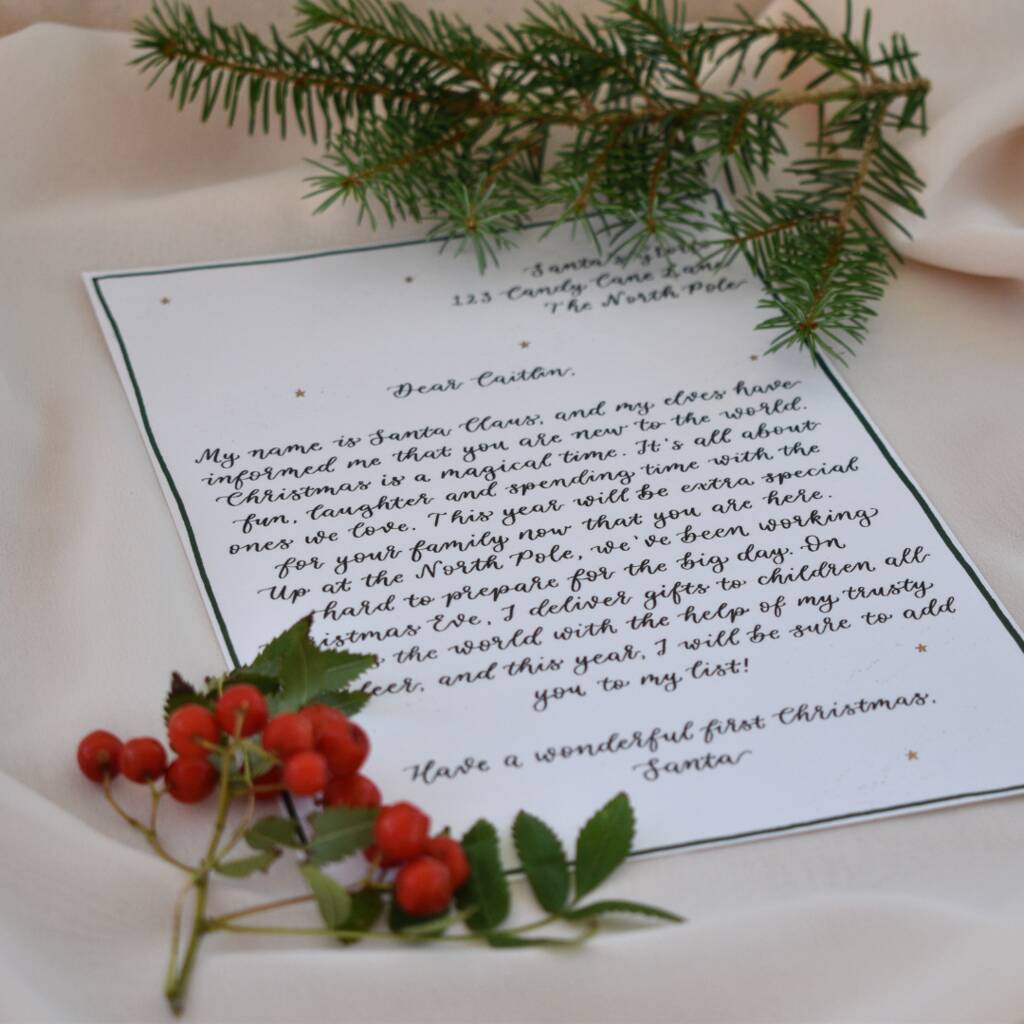 Santa's
123 Candy Cane Lane
The North Pole
Dear Caitlin,
My name is Santa Claus, and my elves have
informed me that you are new to the world.
Christmas is a magical time. It's all about
fun, laughter and spending time with the
ones we love. This year will be extra special
for your family now that you are here.
Up at the North Pole, we've been working
hard to prepare for the big day. On
istmas Eve, I deliver gifts to children all
the world with the help of my trusty
deer, and this year, I will be sure to add
you to my list!
Have a wonderful first Christmas,
Santa